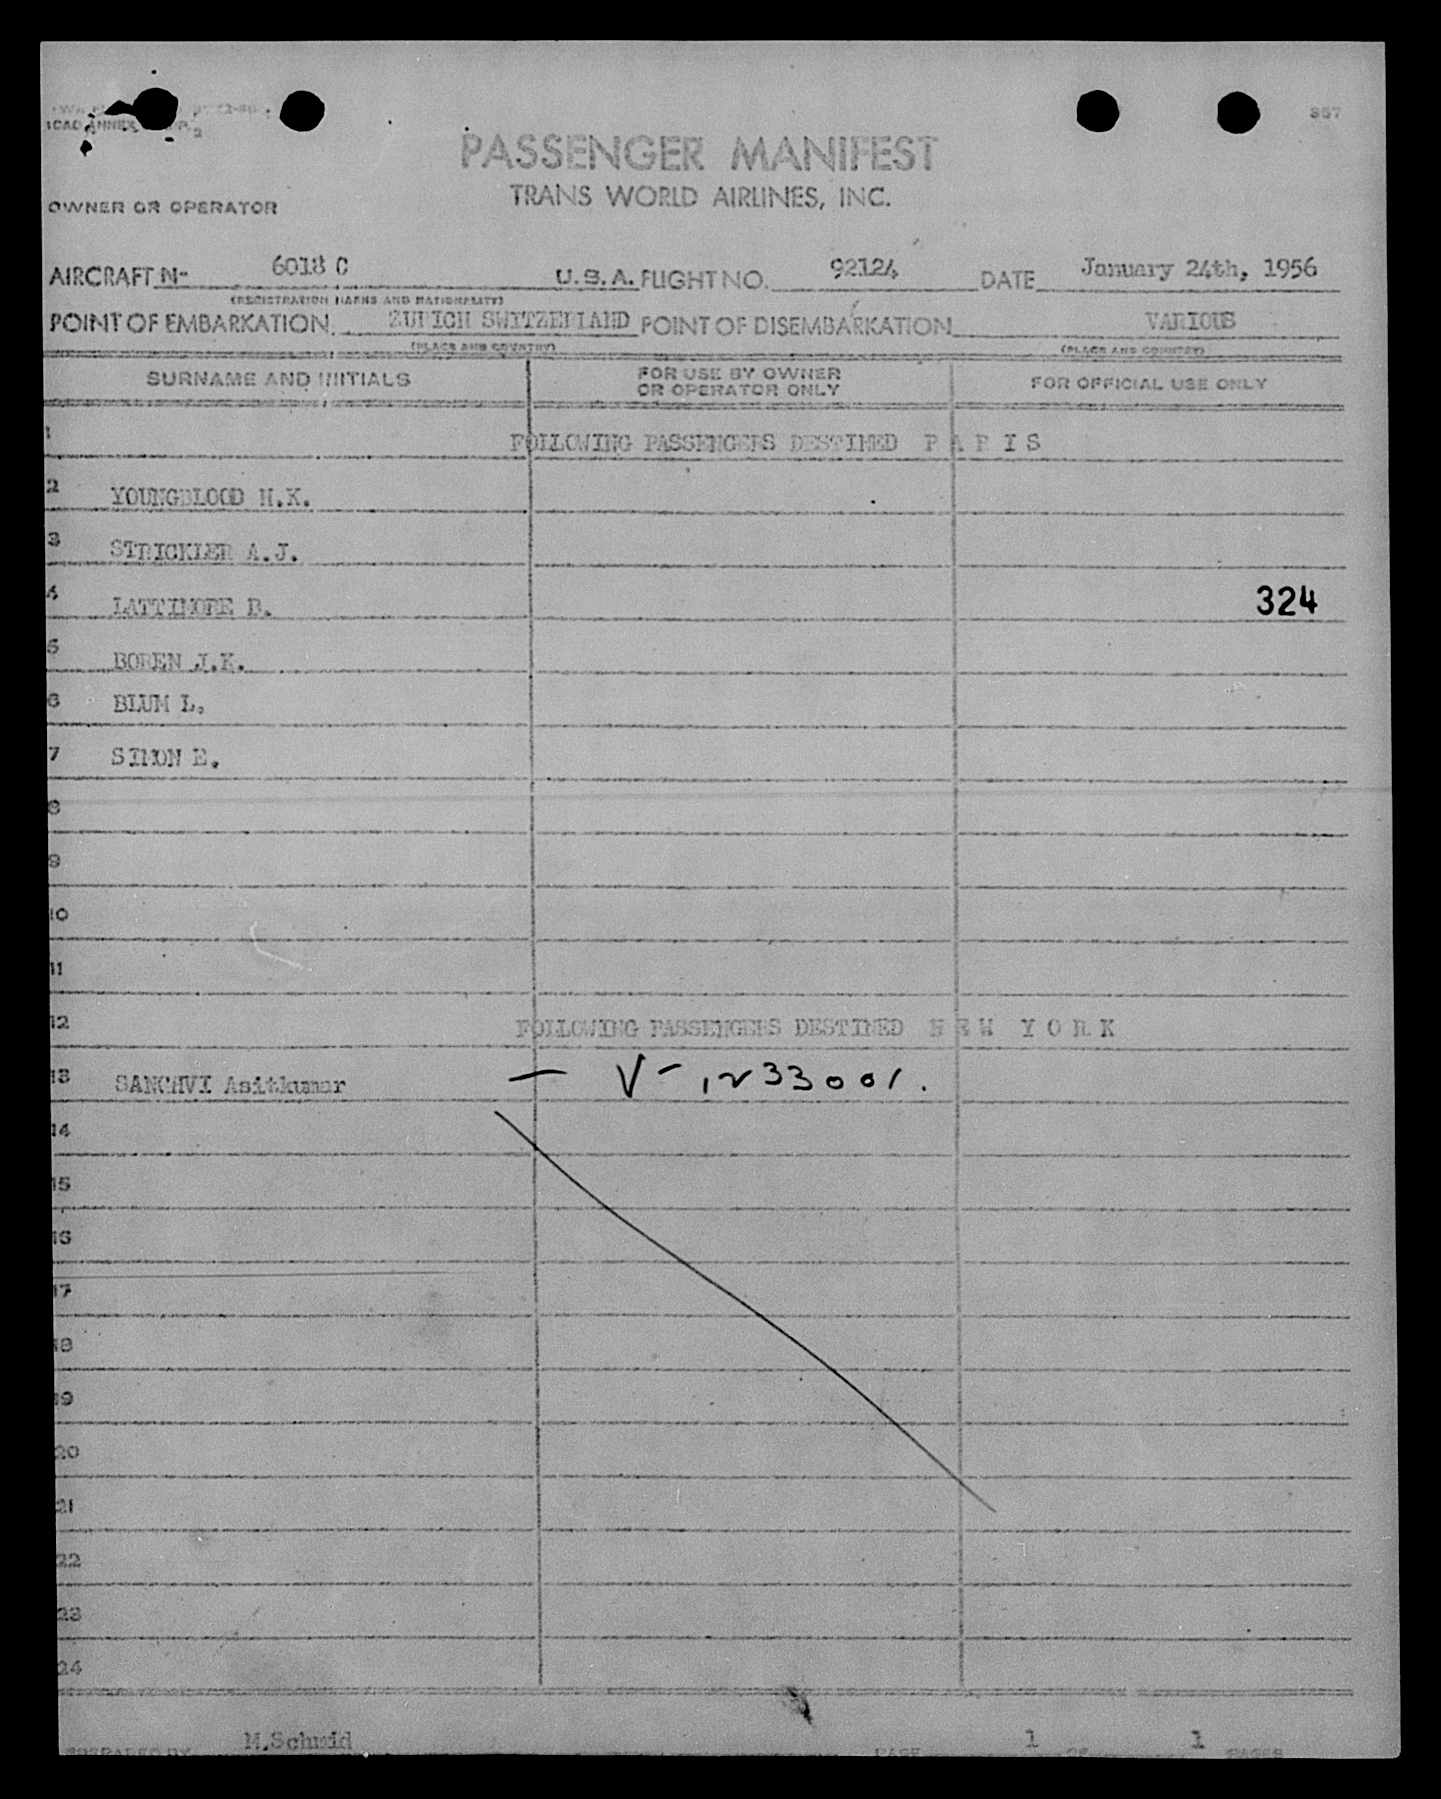 ICAO ANNEX
357
PASSENGER MANIFEST
TRANS WORLD AIRLINES, INC.
OWNER OR OPERATOR
AIRCRAFT N- 6018 C U.S.A. FLIGHT NO. 92124 DATE January 24th, 1956
(REGISTRATION MARKS AND NATIONALITY)
POINT OF EMBARKATION ZURICH SWITZERLAND POINT OF DISEMBARKATION VARIOUS
(PLACE AND COUNTRY) (PLACE AND COUNTRY)
SURNAME AND INITIALS FOR USE BY OWNER OR OPERATOR ONLY FOR OFFICIAL USE ONLY
1 FOLLOWING PASSENGERS DESTINED P A R I S
2 YOUNGBLOOD H.K.
3 STRICKLER A.J.
4 LATTIMORE B. 324
5 BOREN J.K.
6 BLUM L.
7 SIMON E.
8
9
10
11
12 FOLLOWING PASSENGERS DESTINED N E W Y O R K
13 SANGHVI Asitkumar — V-1233001.
14
15
16
17
18
19
20
21
22
23
24
PREPARED BY M.Schmid PAGE 1 OF 1 PAGES